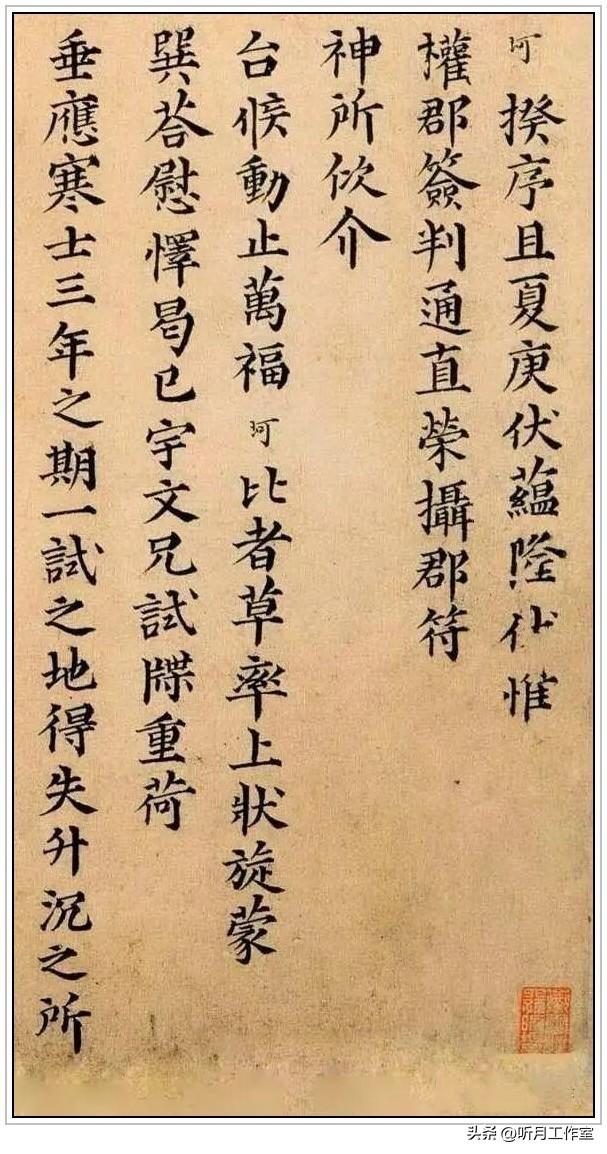 珂揆序且夏庚伏蘊隆伏惟
權郡簽判通直榮攝郡符
神所佽介
台候動止萬福珂比者草率上狀旋蒙
巽荅慰懌曷已宇文兄試牒重荷
垂應寒士三年之期一試之地得失升沉之所
头条 @听月工作室